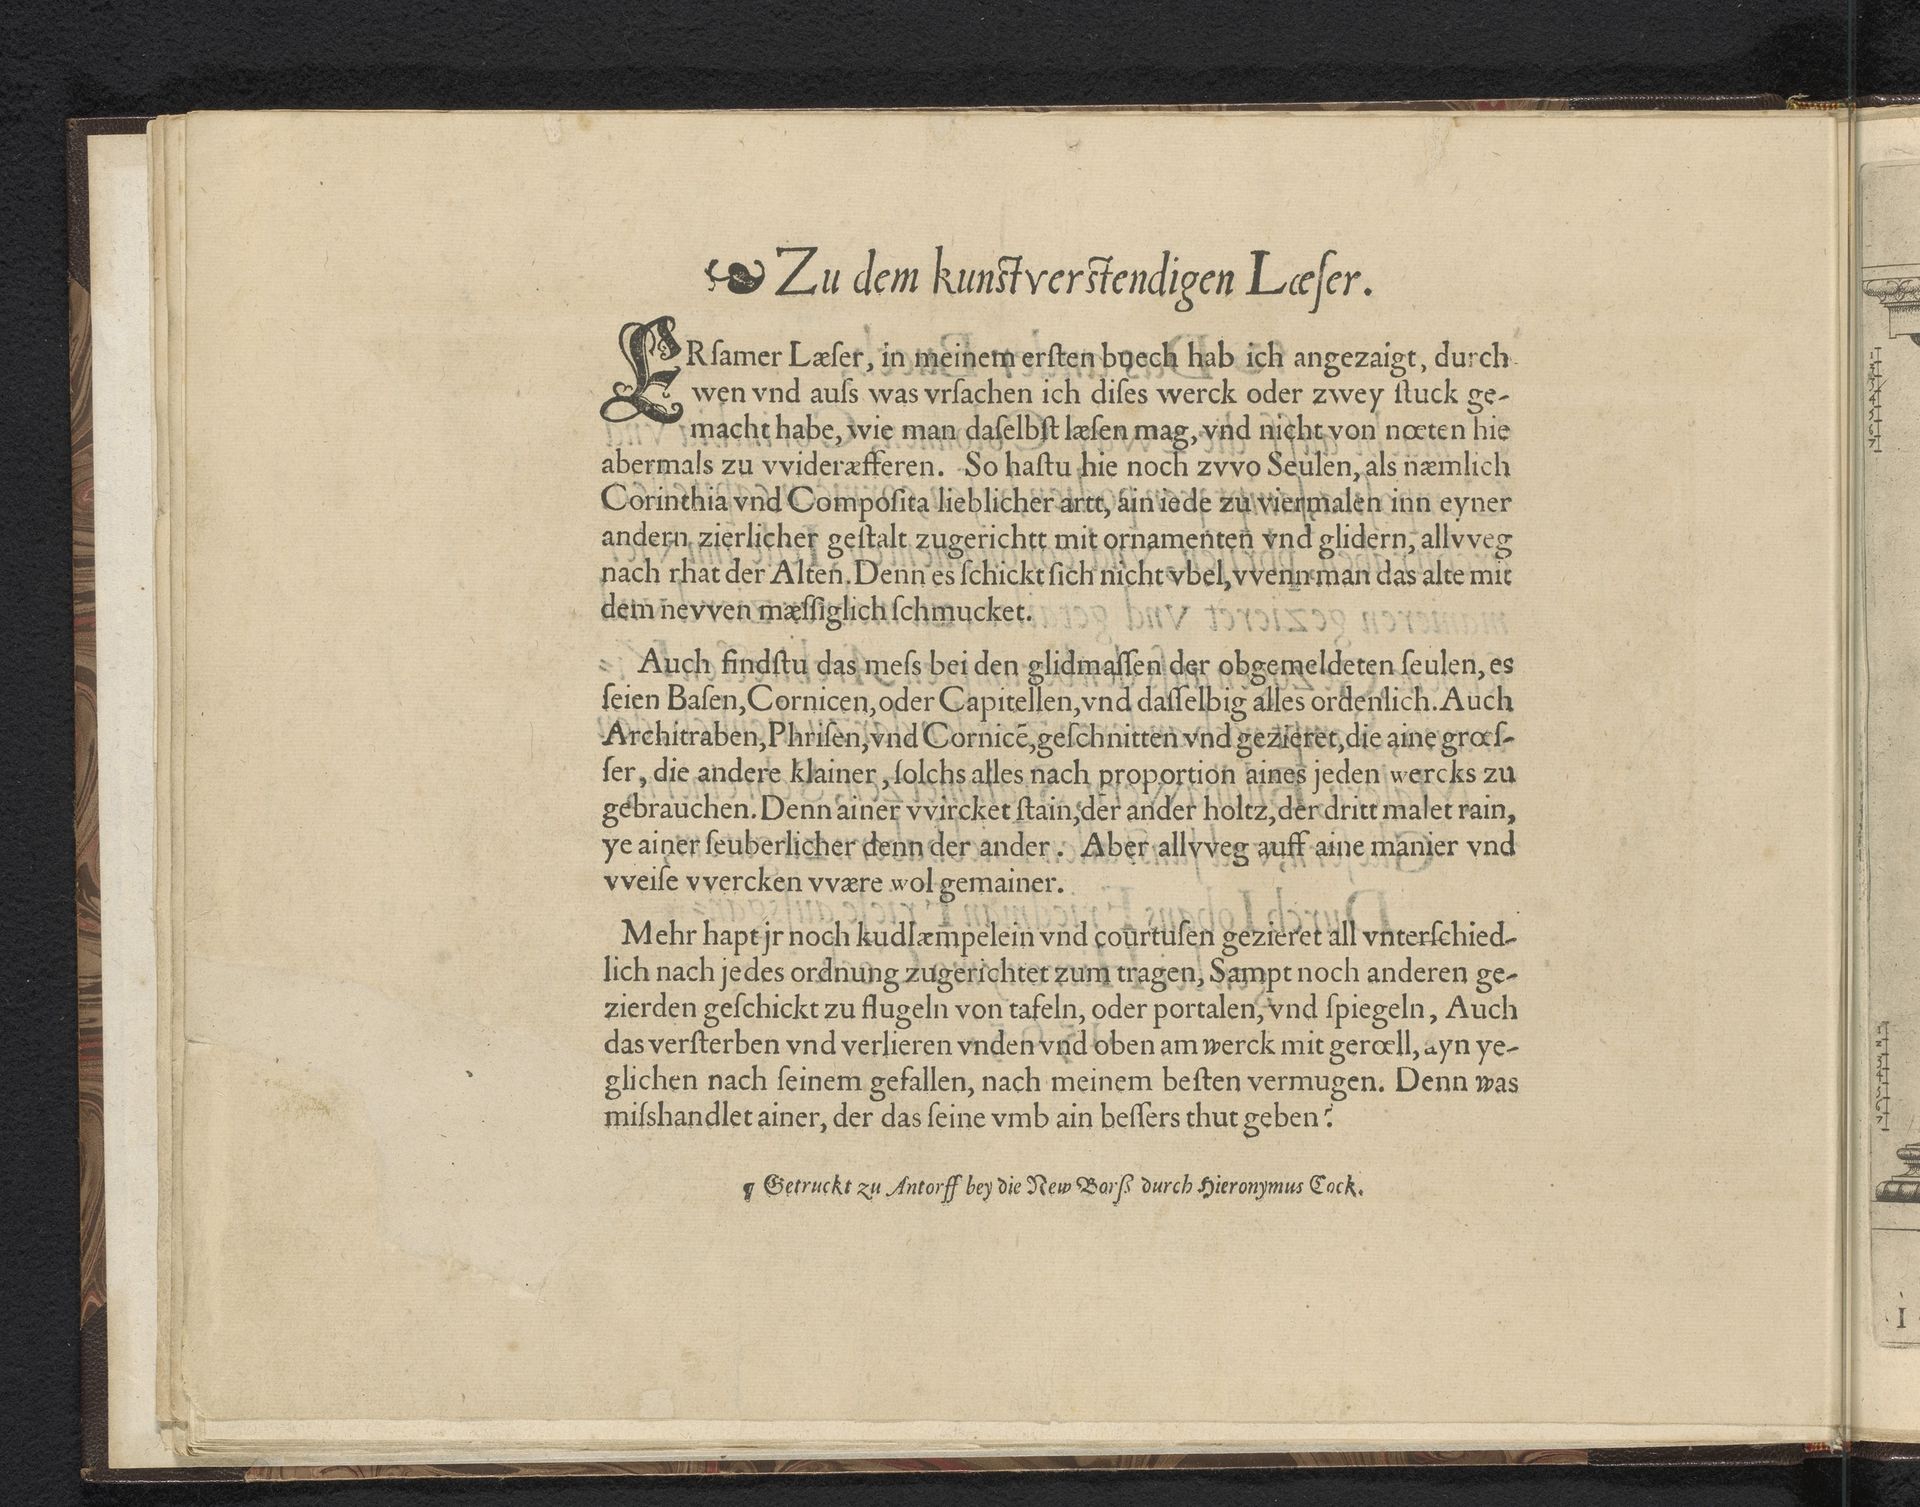 Zu dem kunstverstendigen Læser.
ERſamer Læſer, in meinem erſten buech hab ich angezaigt, durch
wen vnd auſs was vrſachen ich diſes werck oder zwey ſtuck ge-
macht habe, wie man daſelbſt læſen mag, vnd nicht von nœten hie
abermals zu vvideræfferen. So haſtu hie noch zvvo Seulen, als næmlich
Corinthia vnd Compoſita lieblicher artt, ain iede zu viermalen inn eyner
andern zierlicher geſtalt zugerichtt mit ornamenten vnd glidern, allvveg
nach rhat der Alten. Denn es ſchickt ſich nicht vbel, vvenn man das alte mit
dem nevven mæſſiglich ſchmucket.
Auch findſtu das meſs bei den glidmaſſen der obgemeldeten ſeulen, es
ſeien Baſen, Cornicen, oder Capitellen, vnd daſſelbig alles ordenlich. Auch
Architraben, Phriſen, vnd Cornicē, geſchnitten vnd gezieret, die aine grœſ-
ſer, die andere klainer, ſolchs alles nach proportion aines jeden wercks zu
gebrauchen. Denn ainer vvircket ſtain, der ander holtz, der dritt malet rain,
ye ainer ſeuberlicher denn der ander. Aber allvveg auff aine manier vnd
vveiſe vvercken vvære wol gemainer.
Mehr hapt jr noch kudlæmpelein vnd courtuſen gezieret all vnterſchied-
lich nach jedes ordnung zugerichtet zum tragen, Sampt noch anderen ge-
zierden geſchickt zu flugeln von tafeln, oder portalen, vnd ſpiegeln, Auch
das verſterben vnd verlieren vnden vnd oben am werck mit gerœll, ayn ye-
glichen nach ſeinem gefallen, nach meinem beſten vermugen. Denn was
miſshandlet ainer, der das ſeine vmb ain beſſers thut geben?
¶ Getruckt zu Antorff bey die New Borß durch Hieronymus Cock.
I